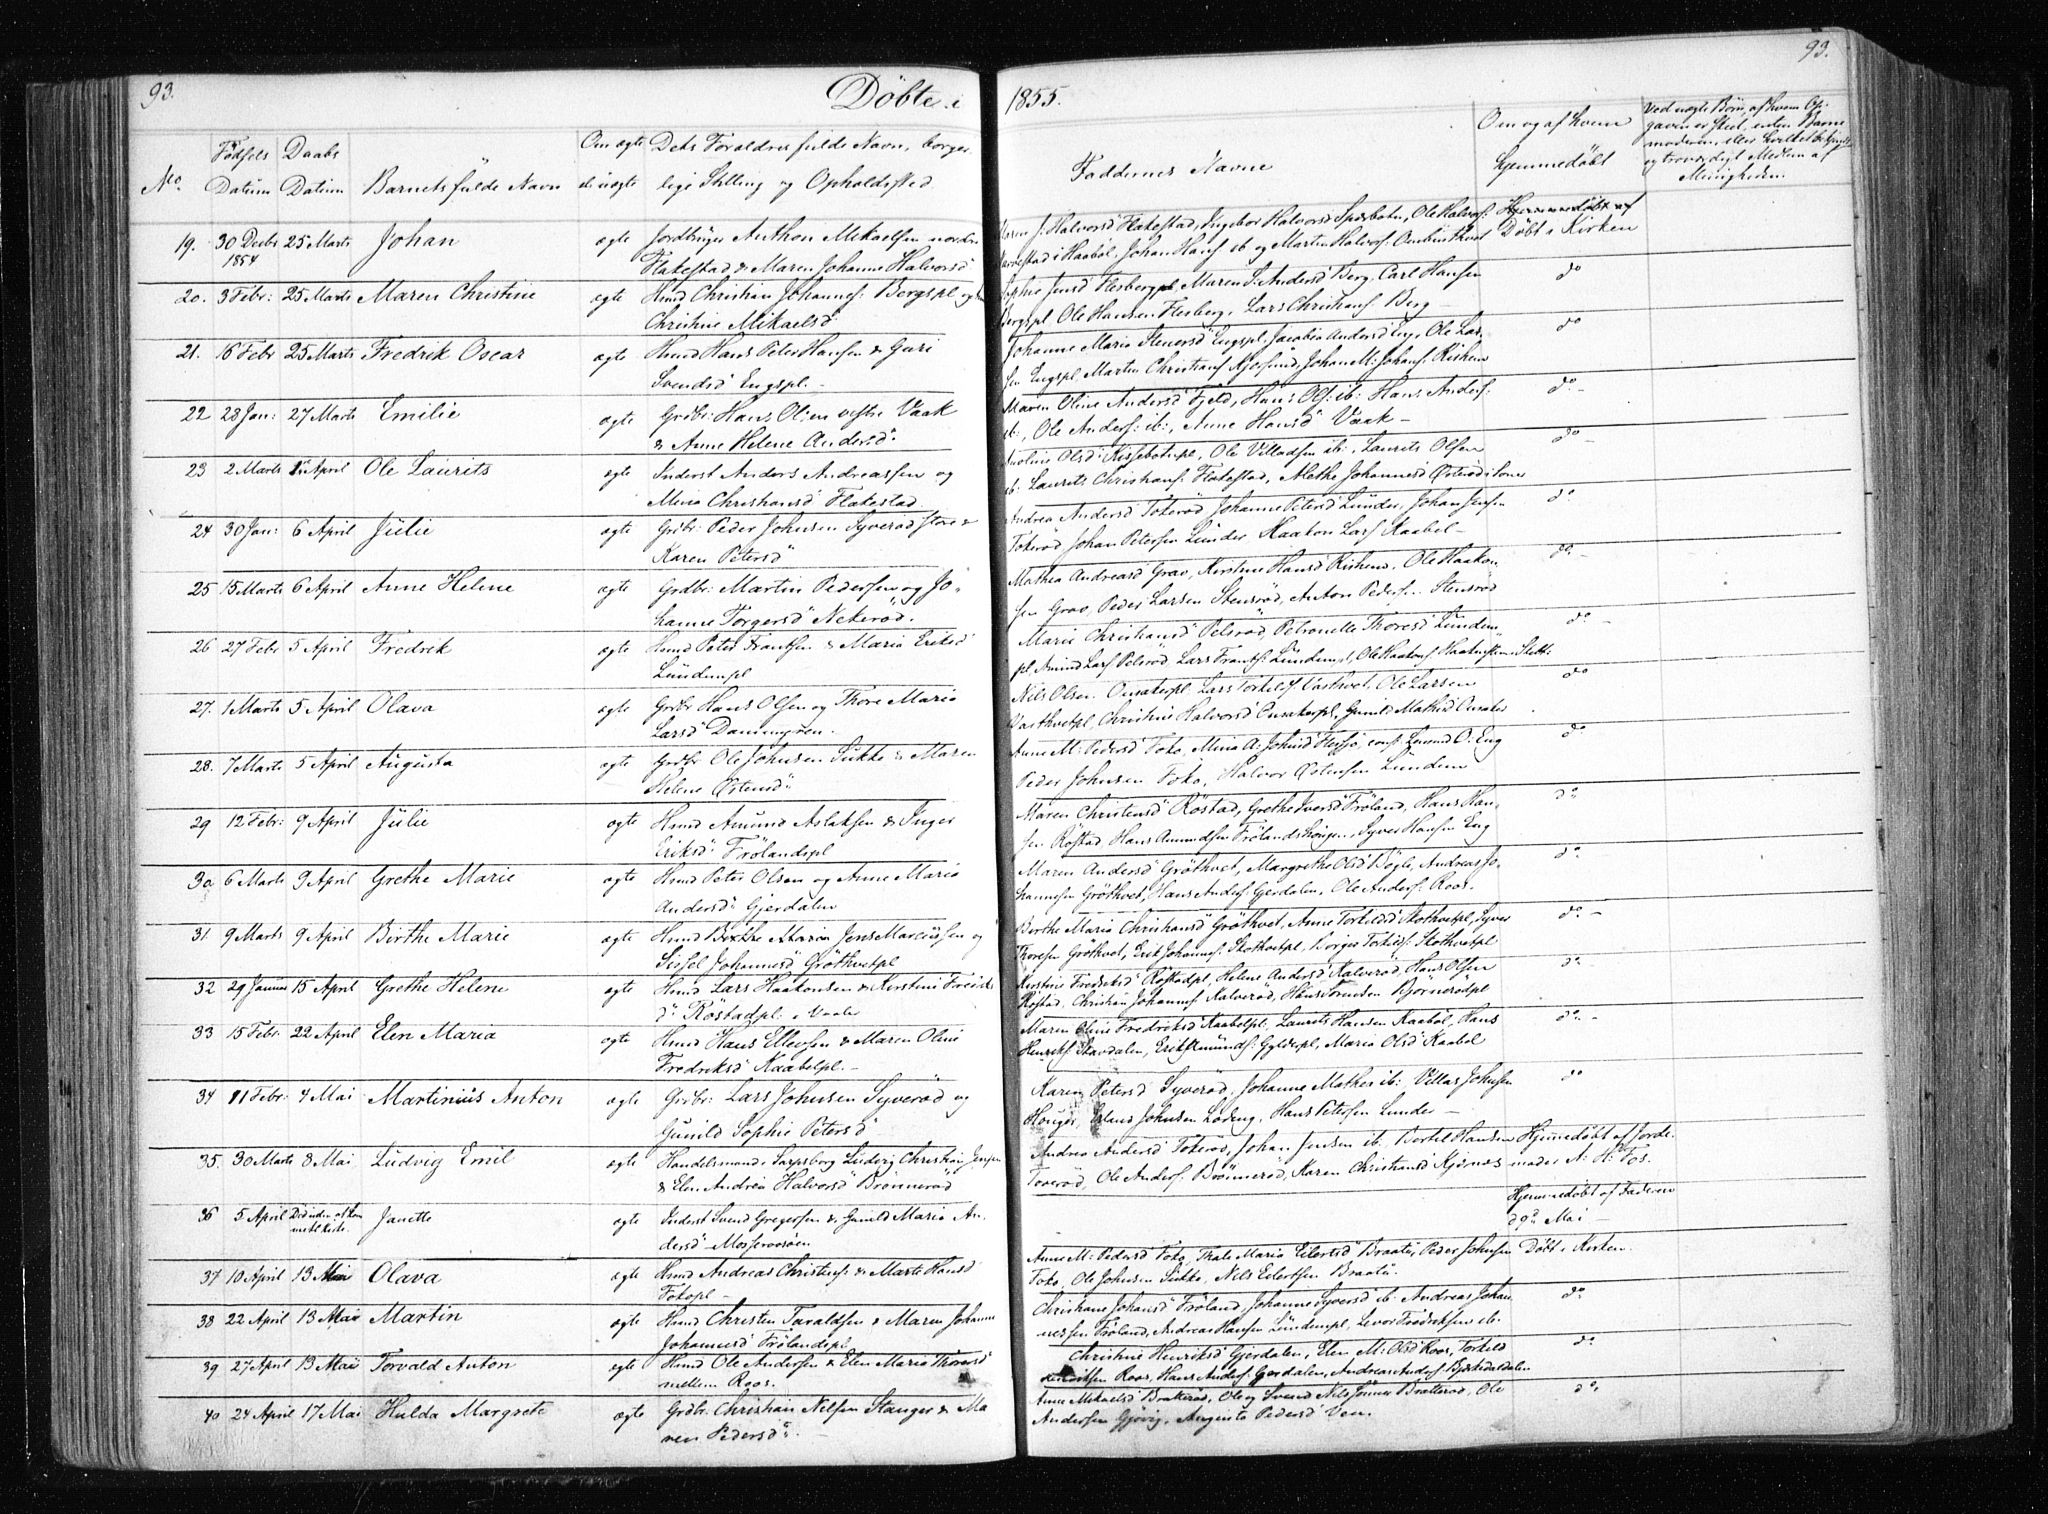 93.
Döbte i 1855.
93.
No.
Fødsels Datum
Daabs Datum
Barnets fulde Navn
Om ægte el. uægte
Dets Forældres fulde Navn, borger-
lige Stilling og Opholdsted
Faddernes Navne
Om og af hvem
hjemmedöbt
Ved uægte Börn, af hvem Op-
gaven er skeet, enten Barne
moderen, eller hvilket
og troværdigt Medlem af
Menigheden.
19. 30 Decbr 1854 25 Marts Johan ægte Jordbruger Anthon Mikaelsen nordre
Flakestad & Maren Johanne Halvorsd
Halvorsd Flakestad, Ingebor Halvorsd Ole Halvors:
i Haabøl, Johan Hans: ib og Martin Halvors:
Döbt i Kirken
20. 3 Febr: 25 Marts Maren Christine ægte Hmd Christian Johannes: Bergspl og
Christine Mikaelsd
Jensd Flesbergpl, Maren S. Andersd Berg, Carl Hansen
Bergspl, Ole Hansen Flesberg, Lars Christians: Berg — do
21. 16 Febr 25 Marts Fredrik Oscar ægte Hmd Hans Peter Hansen & Guri
Svendsd Engspl. -
Johanne Maria Stenersd Engspl, Jacobia Andersd Eng, Ole Lar-
sen Engspl, Martin Christians: Johan M: Johans: Kirkeng do
22 28 Jan: 27 Marts Emilie ægte Grdbr: Hans Olsen vestre Vaak
& Anne Helene Andersd.
Maren Oline Andersd Fjeld, Hans Ols: ib: Hans Anders:
ib:, Ole Anders: ib:, Anne Hansd Vaak — do -
23 2 Marts 1 April Ole Laurits ægte Inderst Anders Andreassen og
Mina Christiansd Flakestad
Olsd Ole Villadsen ib:, Laurits Olsen
ib: Laurits Christians: Flakestad, Alethe Johannesd do -
24 30 Jan: 6 April Julie ægte Grbr: Peder Johnsen Syverød store &
Karen Petersd
Andrea Andersd Tokerød Johanne Petersd Lunder, Johan Jensen
Tokerød Johan Petersen Lunder Haakon Lars: Kaabøl - do
25 15 Marts 6 April Anne Helene ægte Grdbr: Martin Pedersen og Jo-
hanne Torgersd Nekerød.
Mathea Andreasd Grav, Kirstine Hansd Kirkeng, Ole Haakon-
sen Grav, Peder Larsen Stensrød, Anton Pedersen Stensrød do -
26 27 Febr 5 April Fredrik ægte Hmd Peter Frantsen & Maria Eriksd
Lundenpl
Marie Christiansd Pelsrød, Petronelle Thoresd Lunden-
pl, Amund Lars: Pelsrød, Lars Frants: Lundenpl, Ole Haakons: do -
27. 1 Marts 5 April Olava ægte Grdbr Hans Olsen og Thore Maria
Larsd Dammyren.
Nils Olsen Onsakerpl, Lars Torkels: Vasthvet, Ole Larsen
Vasthvetpl, Christine Halvorsd Onsakerpl, Gunild Mathisd Onsaker do
28. 7 Marts 5 April Augusta ægte Grdbr Ole Johnsen Sukke & Maren
Helene Østensd
Anne M: Pedersd Foko, Mina A: Johnsd O. Eng
Peder Johnsen Foko, Halvor Østensen Lunden do
29 12 Febr: 9 April Julie ægte Hmd Amund Aslaksen & Inger
Eriksd: Frölandspl
Maren Christensd Röstad, Grethe Iversd Fröland, Hans Han-
sen Röstad, Hans Amundsen Syver Hansen Eng do
30 6 Marts 9 April Grethe Marie ægte Hmd Peter Olsen og Anne Maria
Andersd: Gjerdalen
Maren Andersd Gröthvet, Margrethe Olsd Bögle, Andreas Jo-
hannesen Gröthvet, Hans Anders: Gjerdalen, Ole Anders: Roos. do
31. 9 Marts 9 April Birthe Marie ægte Hmd Jens Marcussen og
Sissel Johannesd Gröthvetpl
Berthe Maria Christiansd Gröthvet, Anne Torkildsd Slothvetpl, Syver
Thoresen Gröthvet, Erik Johannes: Slothvetpl, Börger Torkils: Slothvetpl do -
32 29 Januar 15 April Grethe Helene ægte Hmd Lars Haakonsen & Kirstine Fredriks
d: Röstadpl. i Vaaler
Kirstine Fredriksd Röstadpl, Helene Andersd Kalverød, Hans Olsen
Röstad, Christian Johannes: Kalverød, Björnerødpl do
33 15 Febr: 22 April Elen Maria ægte Hmd Hans Ellevsen & Maren Oline
Fredriksd Kaabølpl. -
Maren Oline Fredriksd Kaabølpl, Laurits Hansen Kaabøl, Hans
Henriks: Stavdalen, Erik Amunds: Gyldepl, Maria Olsd Kaabøl do -
34 11 Febr: 4 Mai Martinius Anton ægte Grdbr: Lars Johnsen Syverød og
Gunild Sophie Petersd
Karen Petersd Syverød, Johanne Mathea ib: Villas Johnsen
Houger, Erland Johnsen Löreng, Hans Petersen Lunder — do
35. 30 Marts 8 Mai Ludvig Emil ægte Handelsmand i Sarpsborg Ludvig Christian Jensen
& Elen Andrea Halvorsd Brönnerød
Andrea Andersd Tokerød, Johan Jensen ib. Bertel Hansen
Toverød, Ole Anders: Brönnerød, Karen Christiansd Kjörnes
Hjemmedöbt af Jorde-
moder A: H: Fos.
36 5 April Janette ægte Inderst Svend Gregersen & Gunild Maria An-
dersd Mosserosöen
Hjemmedöbt af Faderen
d 9de Mai -
37 10 April 13 Mai Olava ægte Hmd Andreas Christens: & Marte Hansd
Fokopl -
Anne M: Pedersd Foko, Thale Maria Eilertsd Braatu, Peder Johnsen
Foko, Ole Johnsen Sukke, Nils Eilertsen Braatu. Döbt i Kirken.
38 22 April 13 Mai Martin ægte Hmd Christen Taraldsen & Maren Johanne
Johannesd Frölandspl
Christiane Johansd Fröland, Johanne Syversd ib: Andreas Johan-
nessen Fröland, Andreas Hansen Lundenpl, Levor Fredriksen ib. do
39 27 April 13 Mai Torvald Anton ægte Hmd Ole Andersen & Elen Maria Thoresd
mellem Roos.
Christine Henriksd Gjerdalen, Elen M: Olsd Roos, Torkild
Roos, Hans Anders: Gjerdalen, Andreas Anders: do
40 24 April 17 Mai Hulda Margrete ægte Grdbr. Christian Nelsen Stanger & Ma-
ren Pedersd. -
Anne Mikaelsd Bratterød, Ole og Svend Bratterød, Ole
Andersen Gjövig, Augusta Pedersd Ven. do